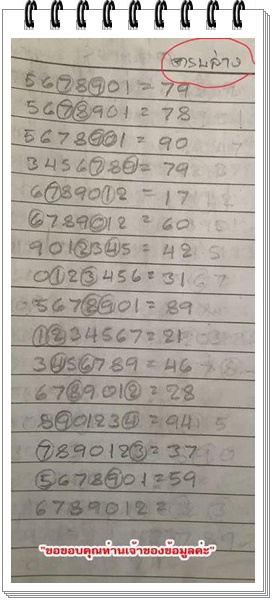 ตารางล่าง
5678901 = 79
5678901 = 78
5678901 = 90
3456789 = 79
6789012 = 17
6789012 = 60
9012345 = 42
0123456 = 31
5678901 = 89
1234567 = 21
3456789 = 46
6789012 = 28
8901234 = 94
7890123 = 37
5678901 = 59
6789012 =
"ขอขอบคุณท่านเจ้าของข้อมูลค่ะ"